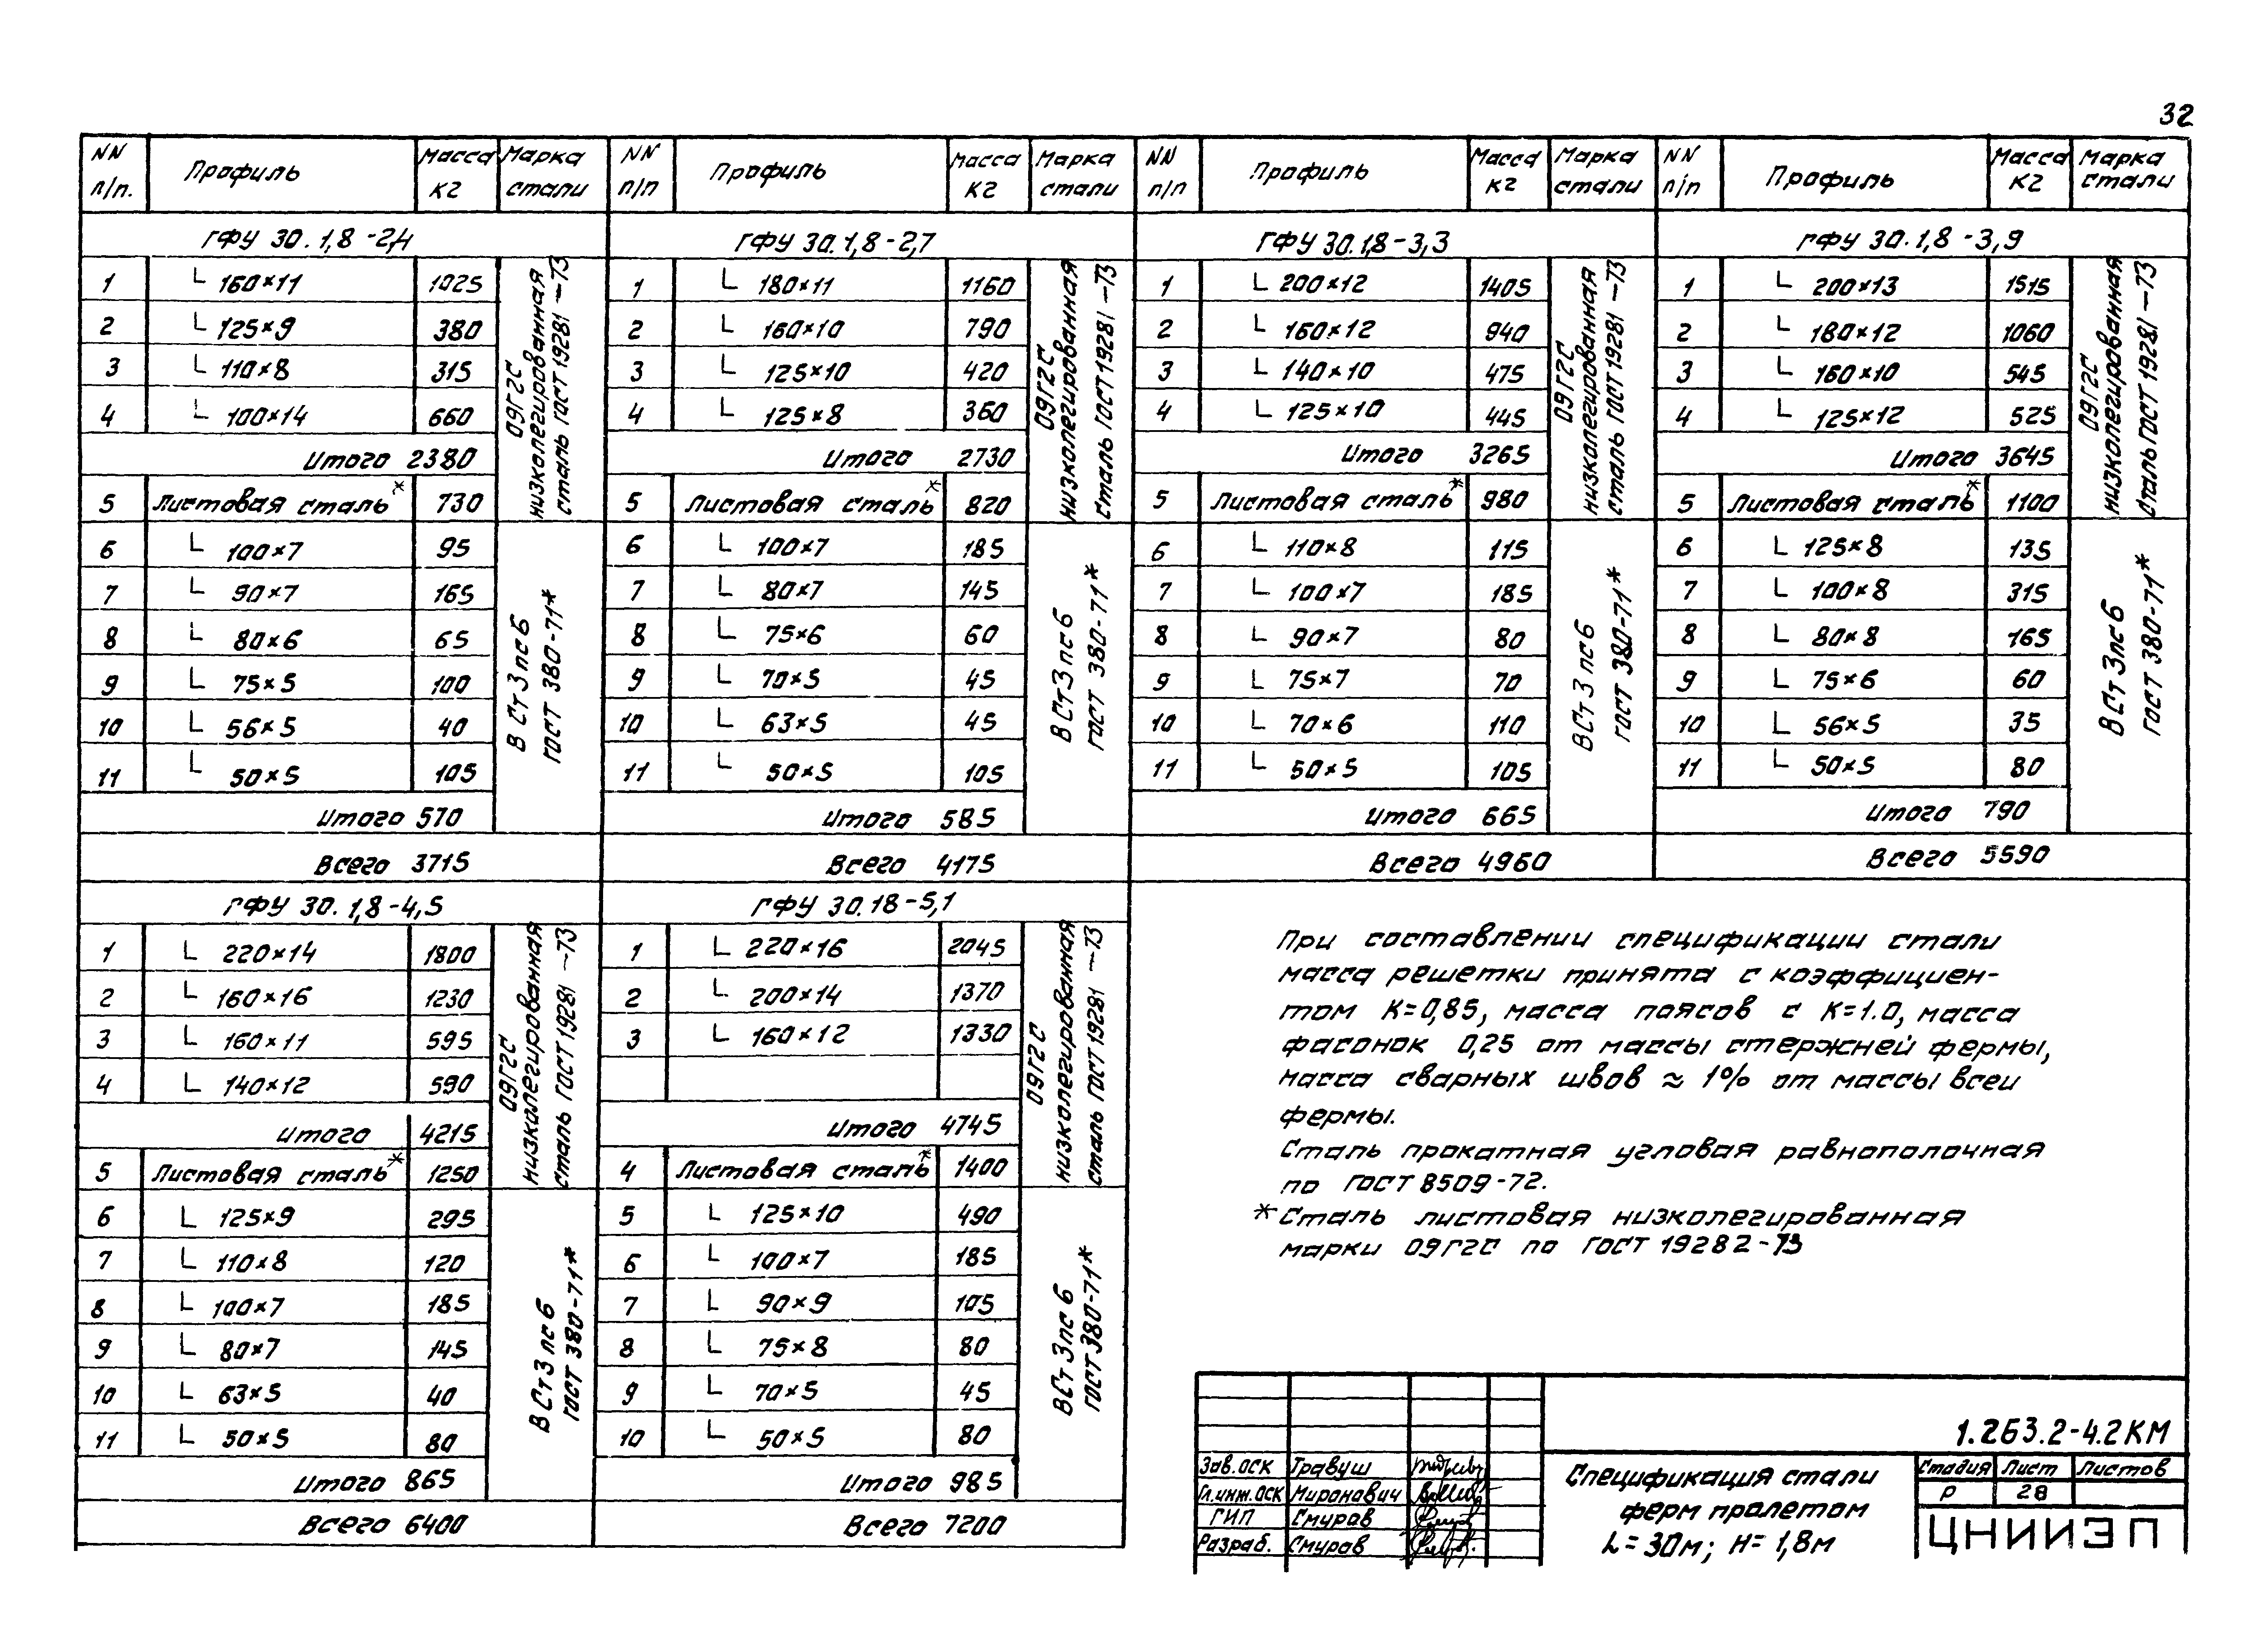 32
NN п/п. Профиль Масса кг Марка стали
ГФУ 30.1,8-2,4
1 L 160×11 1025
2 L 125×9 380
3 L 110×8 315
4 L 100×14 660
Итого 2380
5 Листовая сталь* 730
09Г2С
низколегированная
сталь ГОСТ 19281-73
6 L 100×7 95
7 L 90×7 165
8 L 80×6 65
9 L 75×5 100
10 L 56×5 40
11 L 50×5 105
Итого 570
В Ст 3 пс 6
ГОСТ 380-71*
Всего 3715
NN п/п Профиль Масса кг Марка стали
ГФУ 30.1,8-2,7
1 L 180×11 1160
2 L 160×10 790
3 L 125×10 420
4 L 125×8 360
Итого 2730
5 Листовая сталь* 820
09Г2С
низколегированная
сталь ГОСТ 19281-73
6 L 100×7 185
7 L 80×7 145
8 L 75×6 60
9 L 70×5 45
10 L 63×5 45
11 L 50×5 105
Итого 585
В Ст 3 пс 6
ГОСТ 380-71*
Всего 4175
NN п/п Профиль Масса кг Марка стали
ГФУ 30.1,8-3,3
1 L 200×12 1405
2 L 160×12 940
3 L 140×10 475
4 L 125×10 445
Итого 3265
5 Листовая сталь* 980
09Г2С
низколегированная
сталь ГОСТ 19281-73
6 L 110×8 115
7 L 100×7 185
8 L 90×7 80
9 L 75×7 70
10 L 70×6 110
11 L 50×5 105
Итого 665
В Ст 3 пс 6
ГОСТ 380-71*
Всего 4960
NN п/п Профиль Масса кг Марка стали
ГФУ 30.1,8-3,9
1 L 200×13 1515
2 L 180×12 1060
3 L 160×10 545
4 L 125×12 525
Итого 3645
5 Листовая сталь* 1100
09Г2С
низколегированная
сталь ГОСТ 19281-73
6 L 125×8 135
7 L 100×8 315
8 L 80×8 165
9 L 75×6 60
10 L 56×5 35
11 L 50×5 80
Итого 790
В Ст 3пс 6
ГОСТ 380-71*
Всего 5590
ГФУ 30.1,8-4,5
1 L 220×14 1800
2 L 160×16 1230
3 L 160×11 595
4 L 140×12 590
Итого 4215
5 Листовая сталь* 1250
09Г2С
низколегированная
сталь ГОСТ 19281-73
6 L 125×9 295
7 L 110×8 120
8 L 100×7 185
9 L 80×7 145
10 L 63×5 40
11 L 50×5 80
Итого 865
В Ст 3 пс 6
ГОСТ 380-71*
Всего 6400
ГФУ 30.18-5,1
1 L 220×16 2045
2 L 200×14 1370
3 L 160×12 1330
Итого 4745
4 Листовая сталь* 1400
09Г2С
низколегированная
сталь ГОСТ 19281-73
5 L 125×10 490
6 L 100×7 185
7 L 90×9 105
8 L 75×8 80
9 L 70×5 45
10 L 50×5 80
Итого 985
ВСт 3пс 6
ГОСТ 380-71*
Всего 7200
При составлении спецификации стали
масса решетки принята с коэффициен-
том К=0,85, масса поясов с К=1.0, масса
фасонок 0,25 от массы стержней фермы,
масса сварных швов ≈ 1% от массы всей
фермы.
Сталь прокатная угловая равнополочная
по ГОСТ 8509-72.
* Сталь листовая низколегированная
марки 09Г2С по ГОСТ 19282-73
1.263.2-4.2КМ
Зав.ОСК Травуш
Гл.инж.ОСК Миронавич
ГИП Смирав
Разраб. Смирав
Спецификация стали
ферм пролетом
L=30м; Н=1,8м
Стадия Лист Листов
Р 28
ЦНИИЭП